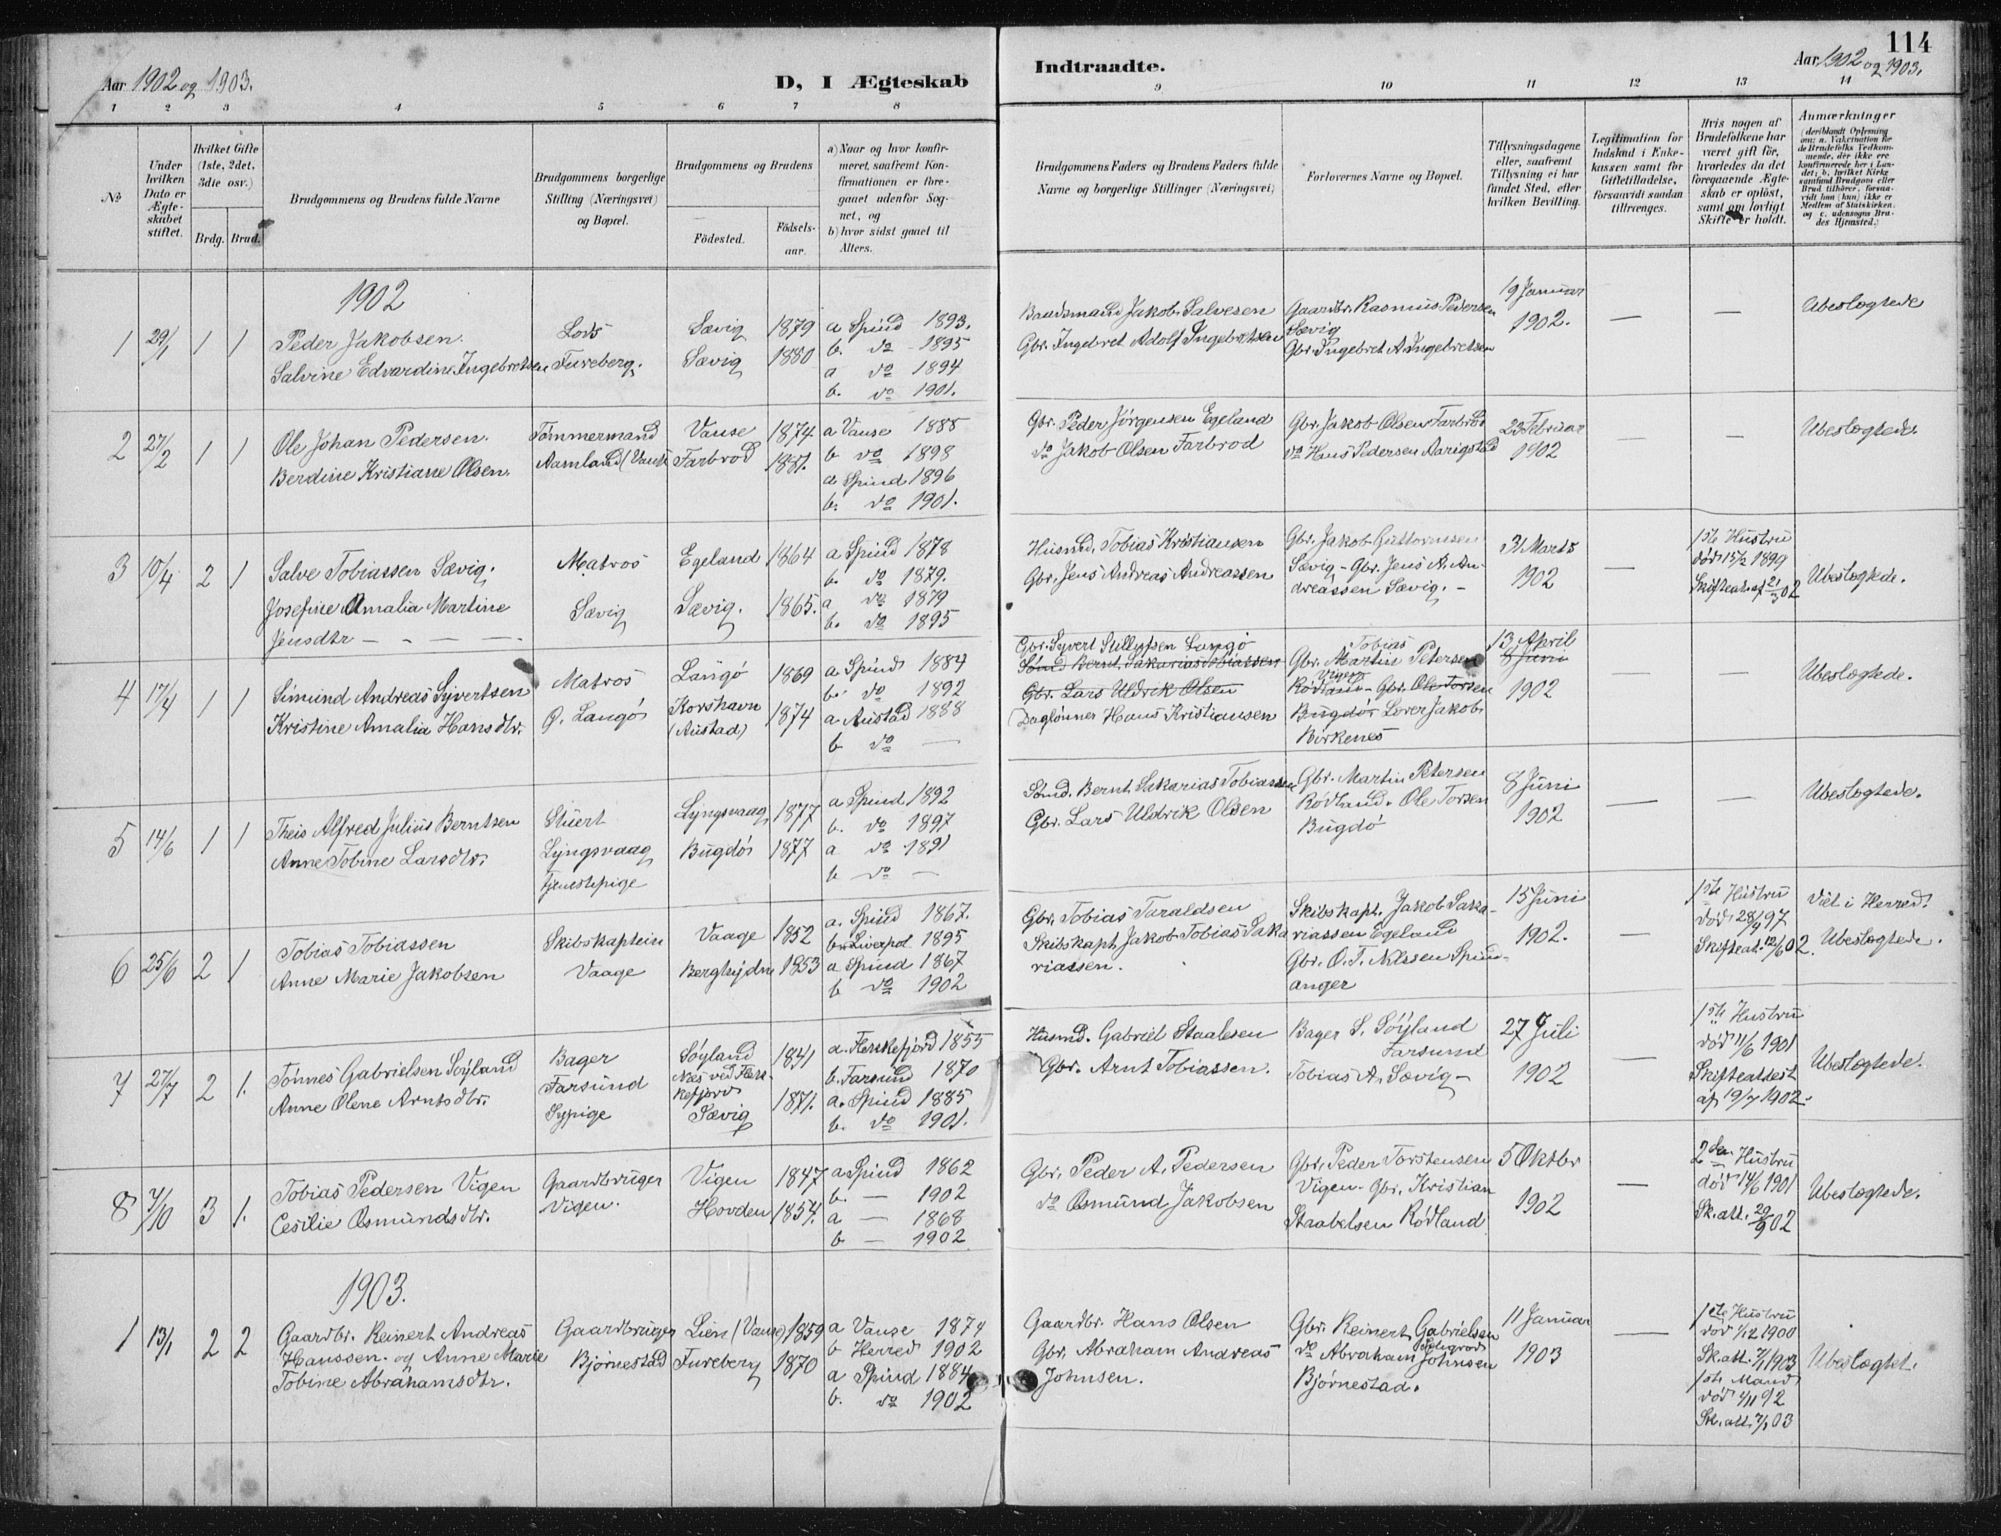 114
Aar 1902 og 1903.
D, I Ægteskab
Indtraadte.
Aar 1902 og 1903.
1 2 3 4 5 6 7 8 9 10 11 12 13 14
No
Under hvilken Dato er Ægteskabet stiftet.
Hvilket Gifte (1ste, 2det, 3die osv.)
Brdg. Brud.
Brudgommens og Brudens fulde Navne
Brudgommens borgerlige Stilling (Næringsvei) og Bopæl.
Brudgommens og Brudens
Födested.
Födsels-aar.
a) Naar og hvor konfirmeret, saafremt Konfirmationen er foregaaet udenfor Sognet, og
b) hvor sidst gaaet til Alters.
Brudgommens Faders og Brudens Faders fulde Navne og borgerlige Stillinger (Næringsvei)
Forlovernes Navne og Bopæl.
Tillysningsdagene eller, saafremt Tillysning ei har fundet Sted, efter hvilken Bevilling.
Legitimation for Indskud i Enkekassen samt for Giftetilladelse, forsaavidt saadan tiltrænges.
Hvis nogen af Brudefolkene har været gift för, hvorledes da det foregaaende Ægteskab er oplöst, samt om lovligt Skifte er holdt.
Anmærkninger
1902
1 29/1 1 1
Peder Jakobsen.
Salvine Edvardine Ingebretsen
Lods
Fureberg.
Sævig 1879
Sævig 1880
a Spind 1893.
b. do 1895
a do 1894
b. do 1901.
Baadsmand Jakob Salvesen
Gbr. Ingebret Adolf Ingebretsen
Gaardbr. Rasmus Pedersen
Sævig
Gbr. Ingebret A. Ingebretsen
19 Januar
1902.
— —
Ubeslægtede
2 27/2 1 1
Ole Johan Pedersen.
Berdine Kristiane Olsen.
Tömmermand
Aamland (Vanse
Vanse 1874
Farbrod 1881.
a Vanse 1888
b do 1898
a Spind 1896
b. do 1901.
Gbr. Peder Jörgensen Egeland
do Jakob Olsen Farbrod
Gbr. Jakob Olsen Farbrod
do Hans Pedersen Aarigstad
23 Februar
1902
— —
Ubeslægtede.
3 10/4 2 1
Salve Tobiassen Sævig.
Josefine Amalia Martine
Jensdtr — - - — -
Matros
Sævig
Egeland 1864
Sævig. 1865.
a Spind 1878
b. do 1879.
a do 1879
b. do 1895
Husmd. Tobias Kristiansen
Gbr. Jens Andreas Andreassen
Gbr. Jakob Guttormsen
Sævig - Gbr. Jens A. An-
dreassen Sævig. -
31 Marts
1902
—
1ste Hustru
död 15/2 1899
Skifteat. af 21/3 02
Ubeslægtede.
4 17/4 1 1
Simund Andreas Syvertsen
Kristine Amalia Hansdtr.
Matros
Ø. Langö
Langö 1869
Korshavn 1874
(Austad)
a Spind 1884
b. do 1892
a. Austad 1888
b do —
Gbr. Syvert Stillufsen Langö
Sömd Bernt Sakarias Tobiassen
Gbr. Lars Uldrik Olsen
Daglönner Hans Kristiansen
Tobias
Gbr. Martin Petersen
Vigen
Rödland - Gbr. Ole Torsen
Bugdö Lover Jakob
Birkenes
13 April
8 Juni
1902
— —
Ubeslægtede.
5 14/6 1 1
Theis Alfred Julius Berntsen
Anne Tobine Larsdtr.
Stuert
Lyngsvaag
Tjenestepige
Lyngsvaag 1877
Bugdö 1877
a Spind 1892
b. do 1897
a do 1891
b do —
Sömd. Bernt Sakarias Tobiassen
Gbr. Lars Uldrik Olsen
Gbr. Martin Petersen
Rödland. Ole Torsen
Bugdö
8 Juni
1902
— —
Ubeslægtede.
6 25/6 2 1
Tobias Tobiassen
Anne Marie Jakobsen
Skibskaptein
Vaage
Vaage 1852
Berghydn 1853
a. Spind 1867.
b. Liverpol 1895
a Spind 1867
b do 1902
Gbr. Tobias Taraldsen
Skibskapt. Jakob Tobias Saka
riassen.
Skibskapt. Jakob Saka-
riassen Egeland
Gbr. O. T. Nilssen Spind-
anger
15 Juni
1902.
—
1ste Hustru
död 28/4 97
Skifteat. 12/6 02.
Viet i Herred.
Ubeslægtede.
7 27/7 2 1.
Tönnes Gabrielsen Söyland
Anne Olene Arntsdtr.
Bager
Farsund
Sypige
Söyland 1841
Næs ved Flek-
kefjord
Sævig 1871.
a. Flekkefjord 1855
b. Farsund 1870
a. Spind 1885
b. do 1901.
Husmd. Gabriel Staalesen
Gbr. Arnt Tobiassen.
Bager S. Söyland
Farsund
Tobias A. Sævig -
27 Juli
1902
—
1ste Hustru
död 11/6 1901
Skifteattest
af 19/7 1902.
Ubeslægtede.
8 7/10 3 1.
Tobias Pedersen Vigen
Cesilie Osmundsdtr.
Gaardbruger
Vigen.
Vigen 1847
Hovden 1854.
a Spind 1862
b. — 1902
a — 1868
b — 1902
Gbr. Peder A. Pedersen
do Osmund Jakobsen
Gbr. Peder Torstensen
Vigen. Gbr. Kristian
Staabelsen Rödland
5 Oktbr
1902
—
2den Hustru
död 14/6 1901
Sk. att. 29/9 02
Ubeslægtede.
1903.
1 13/1 2 2
Gaardbr. Reinert Andreas
Hanssen. og Anne Marie
Tobine Abrahamsdtr.
Gaardbruger
Bjørnestad
Lien (Vanse) 1859
Fureberg 1870
a Vanse 1874
b Herred 1902
a Spind 1884
b. do 1902
Gaardbr. Hans Olsen
Gbr. Abraham Andreas
Johnsen.
Gbr. Reinert Gabrielsen
do Abraham Johnsen
Bjørnestad.
11 Januar
1903
—
1ste Hustru
död 1/12 1900
Sk. att. 7/1 1903
1ste Mand
död 1/11 92
Sk. att. 7/1 03
Ubeslægtet.